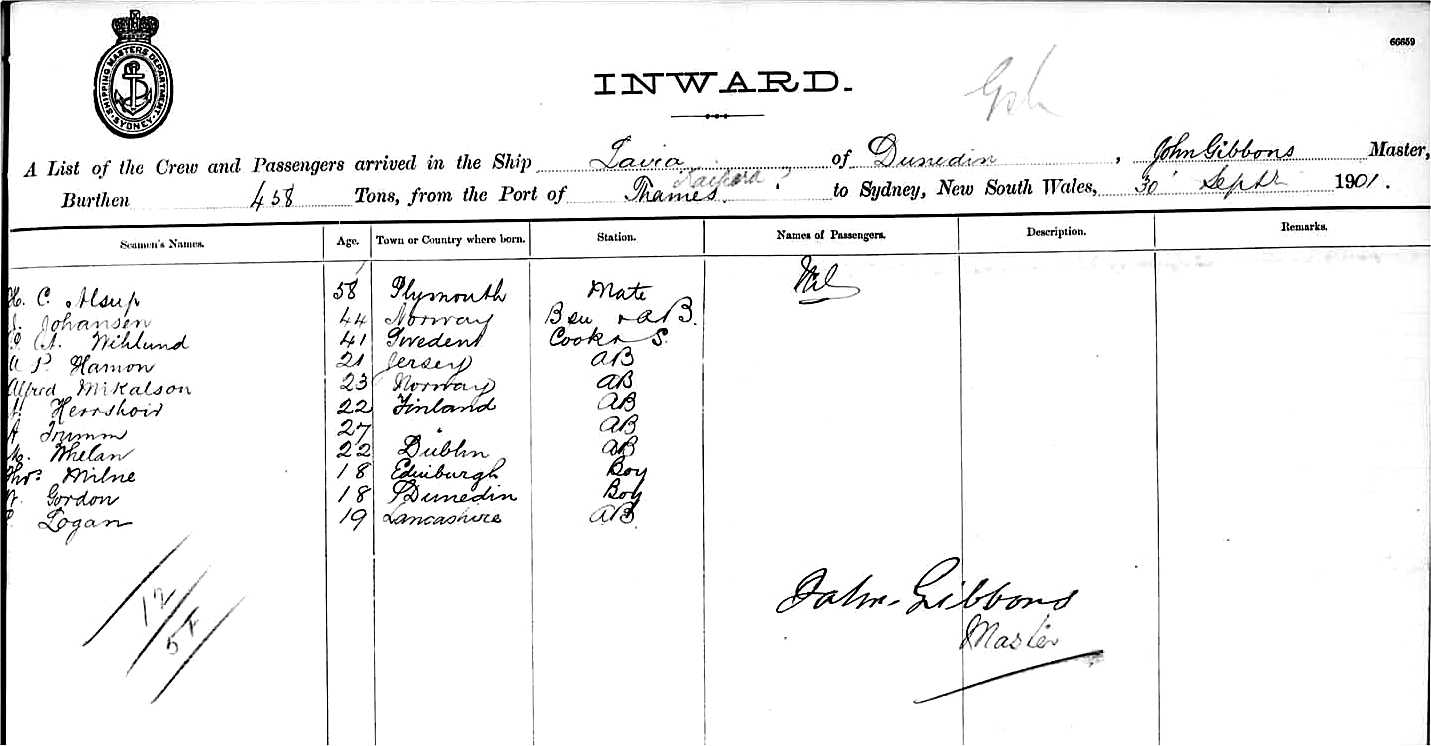 SHIPPING MASTERS DEPARTMENT
SYDNEY
66659
INWARD.
A List of the Crew and Passengers arrived in the Ship Lavia of Dunedin, John Gibbons Master,
Burthen 458 Tons, from the Port of Thames to Sydney, New South Wales, 30 Septr 1901.
Seamen's Names. Age. Town or Country where born. Station. Names of Passengers. Description. Remarks.
H. C. Alsup 58 Plymouth Mate Nil
J. Johansen 44 Norway AB.
A. Wihlund 41 Sweden Cook & S.
A P. Hamon 21 Jersey AB
Alfred Mikalson 23 Norway AB
Herrshoir 22 Finland AB
A Trumm 27 " AB
M. Whelan 22 Dublin AB
Thos Milne 18 Edinburgh Boy
W. Gordon 18 Dunedin Boy
Logan 19 Lancashire AB.
12
John Gibbons
Master